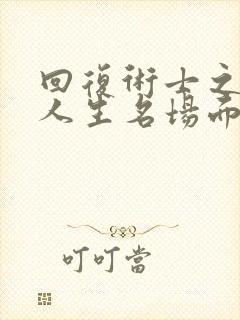 回復術士之
人生名場面
叮叮當